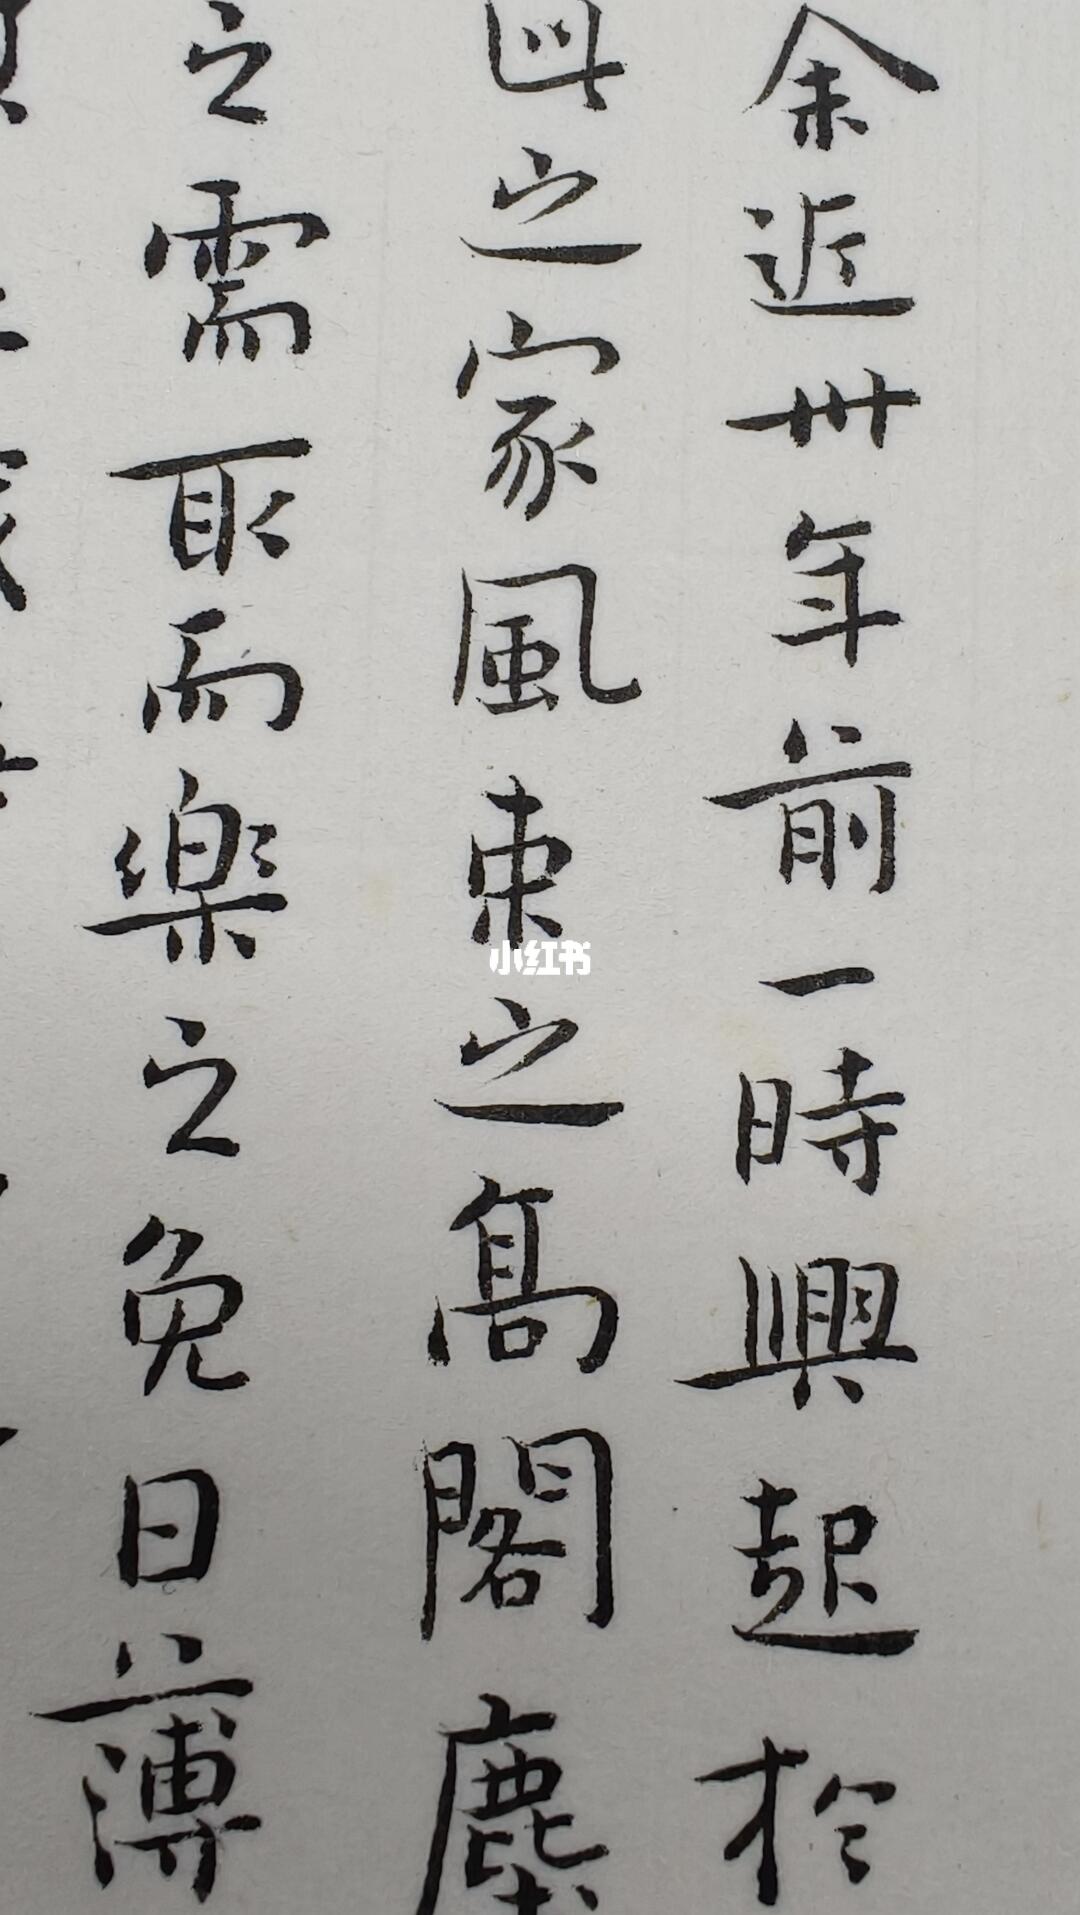 余近卅年前一時興起於
此之家風束之高閣塵
之需取而樂之免日薄
小红书